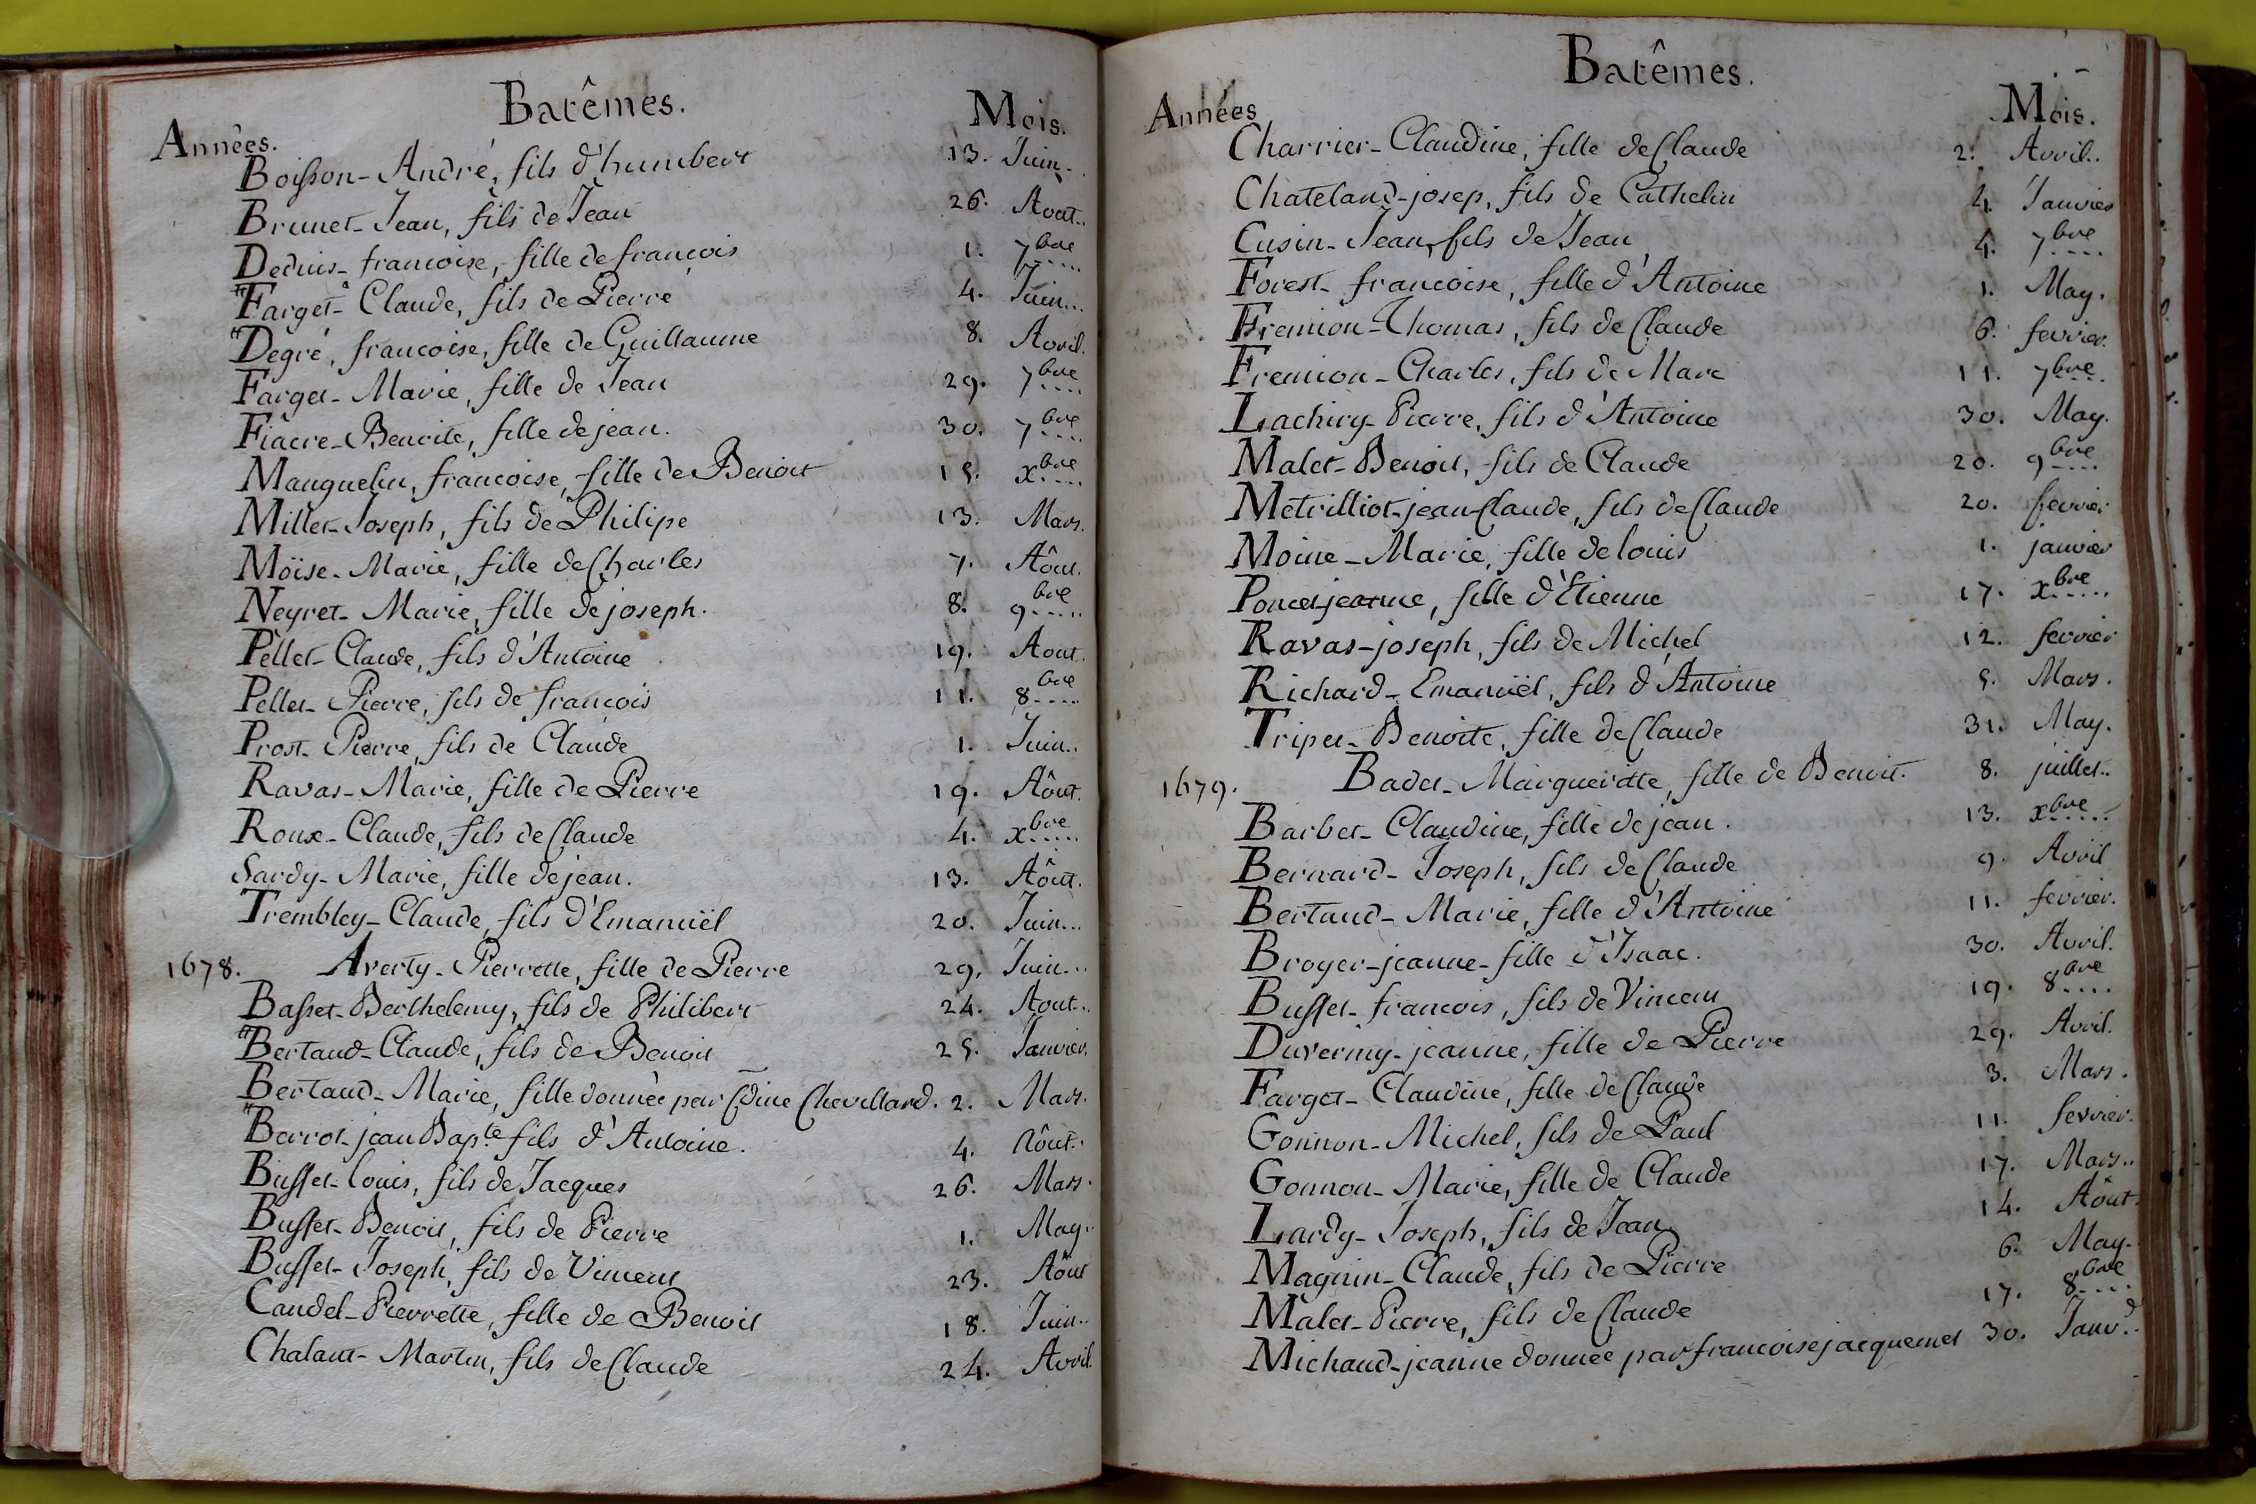 Batêmes.
Années. Mois.
Boisson - André, fils d'humbert 13. Juin.
Brunet - Jean, fils de Jean 26. Aout.
Deduis - francoise, fille de françois 1. 7bre
Farget - Claude, fils de Pierre 4. Juin.
Degré, francoise, fille de Guillaume 8. Avril.
Farget - Marie, fille de Jean 29. 7bre
Fiacre - Benoite, fille de jean. 30. 7bre
Manguelin, francoise, fille de Benoit 15. xbre
Millet - Joseph, fils de Philipe 13. Mars.
Moïse - Marie, fille de Charles 7. Aôut.
Neyret - Marie, fille de joseph. 8. 9bre
Pellet - Claude, fils d'Antoine 19. Aout.
Pellet - Pierre, fils de françois 11. 8bre
Prost - Pierre, fils de Claude 1. Juin.
Ravas - Marie, fille de Pierre 19. Aôut.
Roux - Claude, fils de Claude 4. xbre
Sardy - Marie, fille de jean. 13. Aôut.
Trembley - Claude, fils d'Emanuël 20. Juin...
1678. Averty - Pierrette, fille de Pierre 29. Juin...
Basset - Berthelemy, fils de Philibert 24. Aout..
Bertaud - Claude, fils de Benoit 25. Janvier.
Bertaud - Marie, fille donnée par Cdine Chevillard. 2. Mars.
Borrot - jean Bapte fils d'Antoine. 4. Aôut.
Busset - louis, fils de Jacques 26. Mars.
Busset - Benoit, fils de Pierre 1. May.
Busset - Joseph, fils de Vincent 23. Aôut
Caudel - Pierrette, fille de Benoit 18. Juin..
Chalant - Martin, fils de Claude 24. Avril.
Batêmes.
Années Mois.
Charrier - Claudine, fille de Claude 2. Avril..
Chateland - josep, fils de Cathelin 4. Janvier
Cusin - Jean, fils de Jean 4. 7bre
Forest - francoise, fille d'Antoine 1. May.
Fremion - Thomas, fils de Claude 6. fevrier.
Fremion - Charles, fils de Marc 11. 7bre
Lachiry - Pierre, fils d'Antoine 30. May.
Malet - Benoit, fils de Claude 20. 9bre
Metrilliot - jean Claude, fils de Claude 20. fevrier
Moine - Marie, fille de louis 1. janvier
Poncet jeanne, fille d'Etienne 17. xbre
Ravas - joseph, fils de Michel 12. fevrier
Richard - Emanuël, fils d'Antoine 5. Mars.
Tripet - Benoite, fille de Claude 31. May.
1679. Badet - Margueritte, fille de Benoit. 8. juillet..
Barbet - Claudine, fille de jean. 13. xbre
Bernard - Joseph, fils de Claude 9. Avril
Bertaud - Marie, fille d'Antoine 11. fevrier.
Broyer - jeanne - fille d'Isaac. 30. Avril.
Busset - francois, fils de Vincent 19. 8bre
Duverny - jeanne, fille de Pierre 29. Avril.
Farget - Claudine, fille de Claude 3. Mars.
Gonnon - Michel, fils de Paul 11. fevrier.
Gonnon - Marie, fille de Claude 17. Mars..
Lardy - Joseph, fils de Jean 14. Aôut.
Magnin - Claude, fils de Pierre 6. May.
Malet - Pierre, fils de Claude 17. 8bre
Michaud - jeanne donnée par francoise jacquemet 30. Janv.